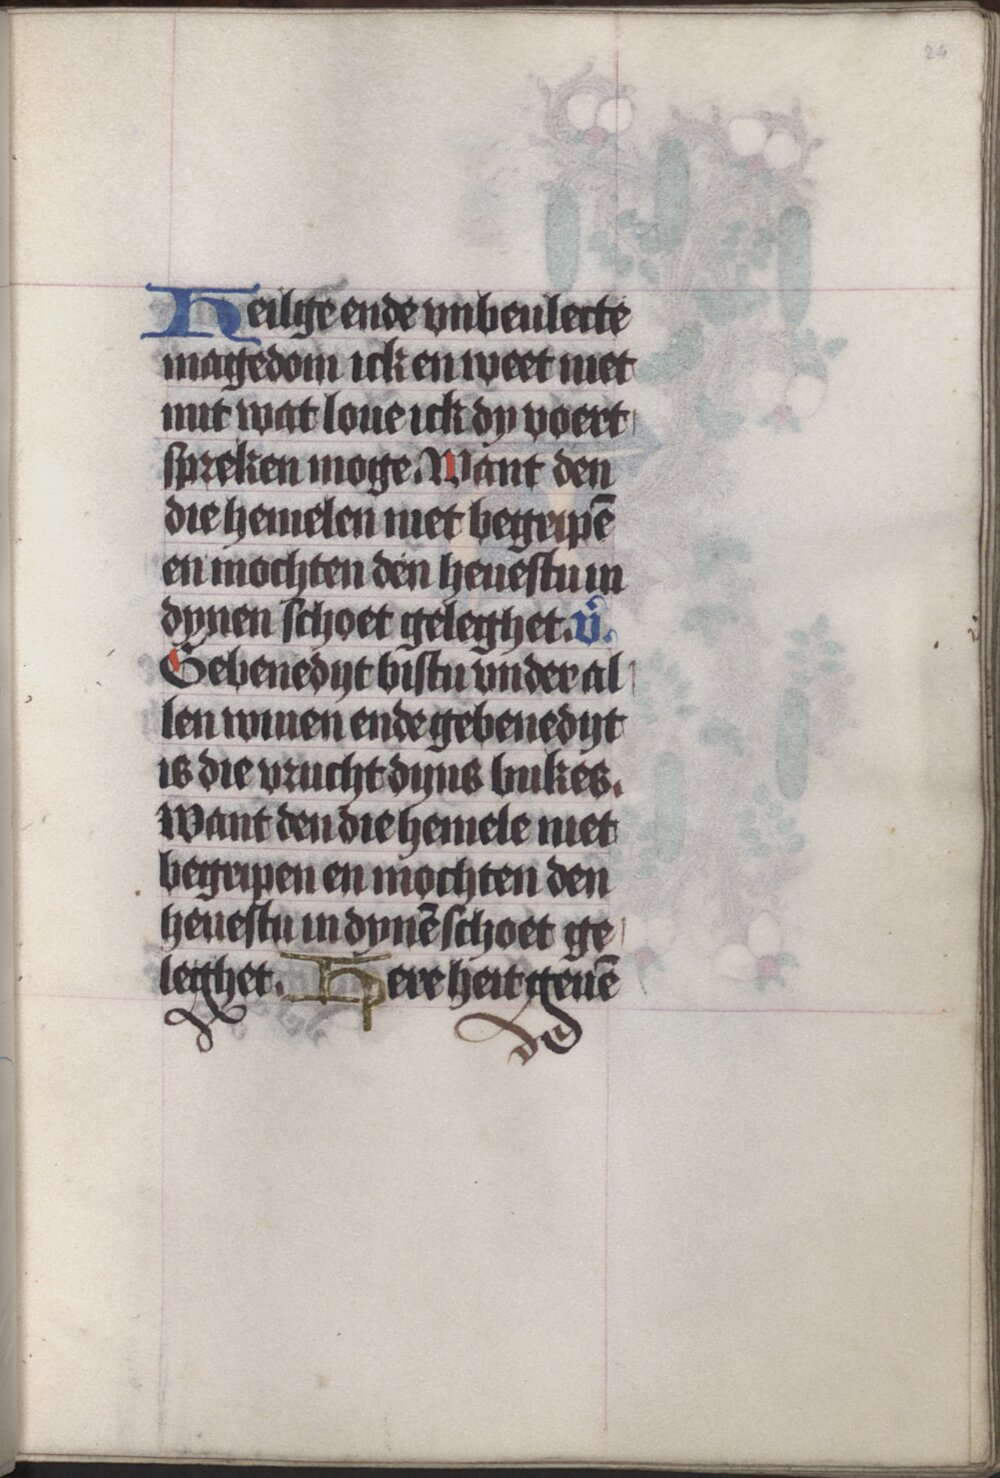 24
Heilige ende vnbeulecte
magedom ick en weet niet
mit wat loue ick dy voert
spreken moge. Want den
die hemelen niet begripē
en mochten den heuestu in
dynen schoet geleghet. v̄.
Gebenedijt bistu vnder al
len wiuen ende gebenedijt
is die vrucht dijns bukes.
Want den die hemele niet
begripen en mochten den
heuestu in dynē schoet ge
leghet. Here heit geuē